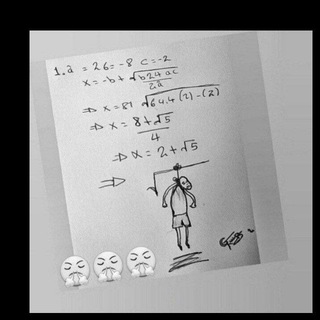 1. a = 2 b = -8 c = -2
x = -b + √b24ac
2a
⇒ x = 8+ √64.4 (2) - (2)
⇒ x = 8 + √5
4
⇒ x = 2 + √5
⇒